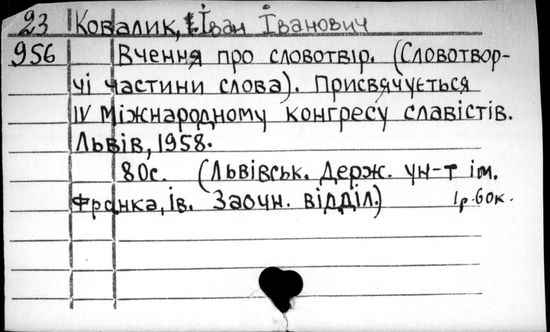 23 Ковалик, Іван Іванович
956 Вчення про словотвір. (Словотвор-
чі частини слова). Присвячується
IV Міжнародному конгресу славістів.
Львів, 1958.
80с. (Львівськ. Держ. ун-т ім.
Франка, ів. Заочн. відділ.) 1р.60к.